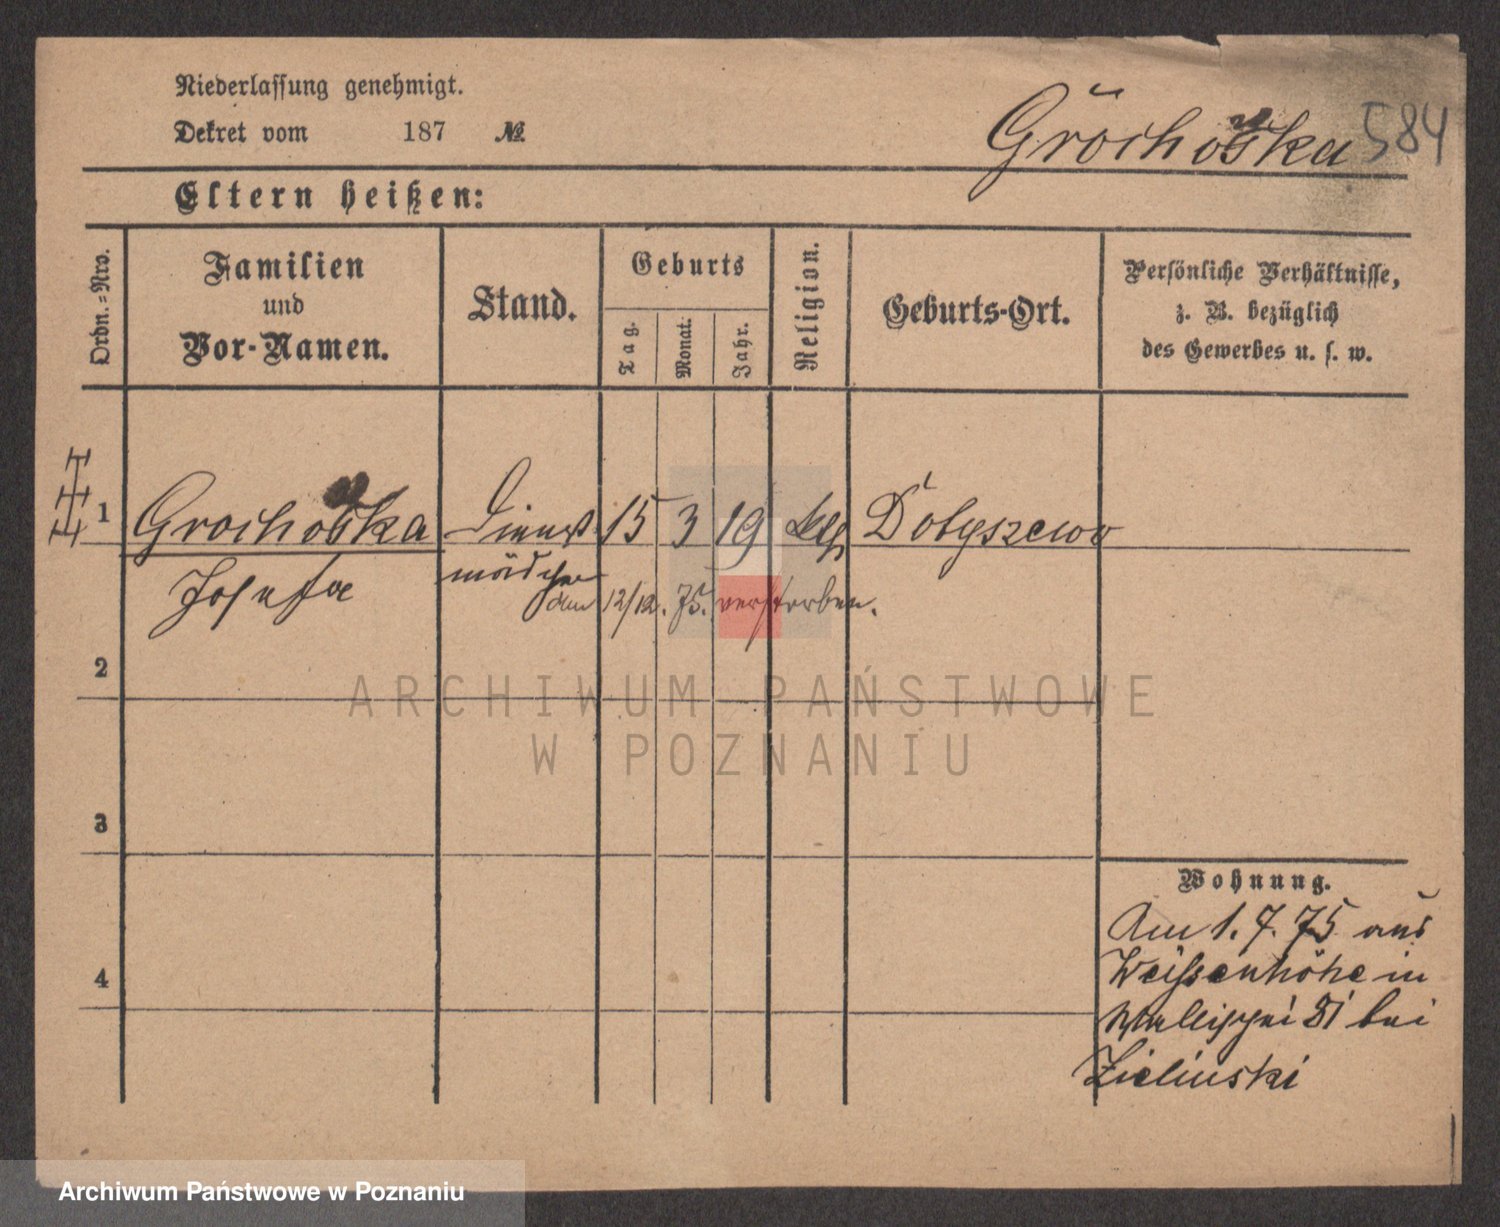 Niederlassung genehmigt.
Dekret vom 187 №
Grochoska 584
Eltern heißen:
Ordn.-Nro.
Familien
und
Vor-Namen.
Stand.
Geburts
Tag.
Monat.
Jahr.
Religion.
Geburts-Ort.
Persönliche Verhältnisse,
z. B. bezüglich
des Gewerbes u. s. w.
1 Grochoska Dienst 15 3 19 Dobyszewo
Josefa mädchen
am 12/12. 75. verstorben.
2
3
4
Wohnung.
Am 1. 7. 75 aus
Weissenhöhe in
Wallischei bei
Zielinski
ARCHIWUM PAŃSTWOWE
W POZNANIU
Archiwum Państwowe w Poznaniu